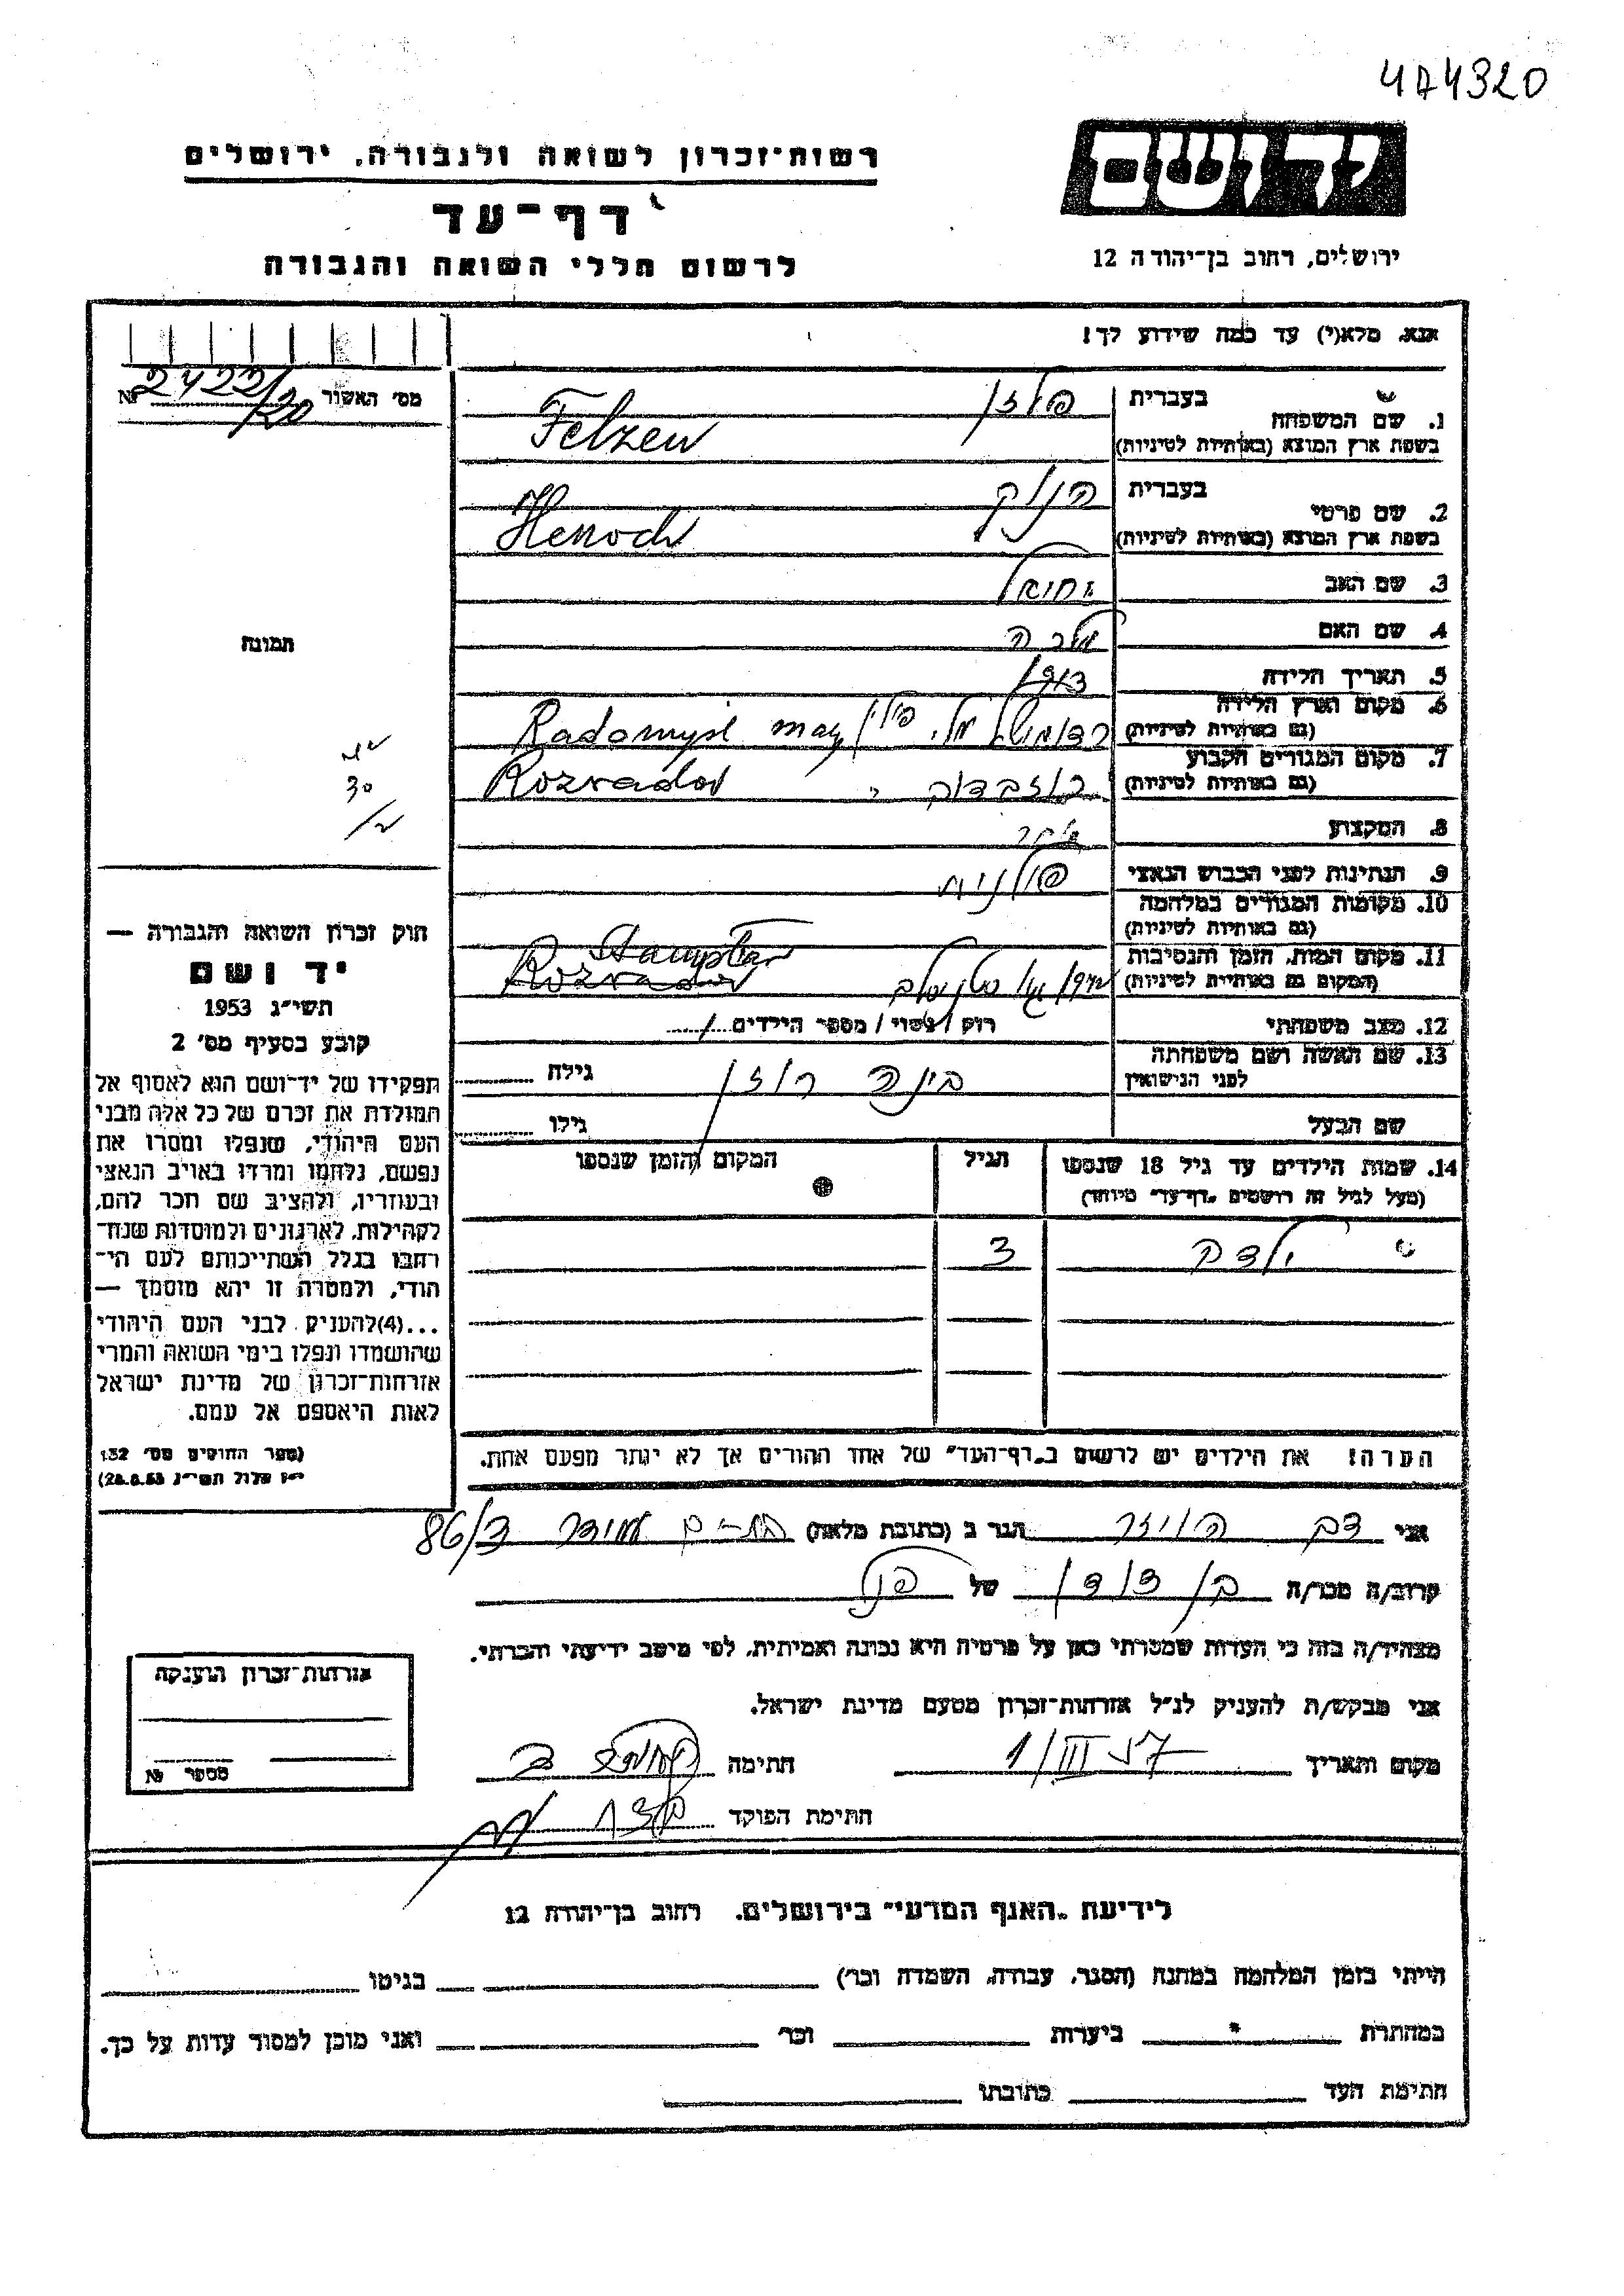 474320
יד ושם
רשות־זכרון לשואה ולגבורה, ירושלים
דף־עד
לרשום חללי השואה והגבורה
ירושלים, רחוב בן־יהודה 12
אנא, מלא(י) עד כמה שידוע לך!
מס' האשור № 2422/20
1. שם המשפחה
בעברית פלזן
בשפת ארץ המוצא (באותיות לטיניות) Felzen
2. שם פרטי
בעברית הנוך
בשפת ארץ המוצא (באותיות לטיניות) Henoch
3. שם האב
4. שם האם מלכה
5. תאריך הלידה 1913
6. מקום וארץ הלידה
(גם באותיות לטיניות) פולין Radomysl
7. מקום המגורים הקבוע
(גם באותיות לטיניות) רוזבדוב Rozvadov
8. המקצוע
9. הנתינות לפני הכבוש הנאצי פולנית
10. מקומות המגורים במלחמה
(גם באותיות לטיניות)
11. מקום המות, הזמן והנסיבות
(המקום גם באותיות לטיניות) Rozvadov
12. מצב משפחתי רוק / נשוי / מספר הילדים 1
13. שם האשה ושם משפחתה
לפני הנישואין בינה רוזן גילה
שם הבעל גילו
14. שמות הילדים עד גיל 18 שנספו
(מעל לגיל זה רושמים „דף־עד" מיוחד)
הגיל
המקום והזמן שנספו
ילדה 3
הערה! את הילדים יש לרשום ב„דף־העד" של אחד ההורים אך לא יותר מפעם אחת.
תמונה
30
חוק זכרון השואה והגבורה —
יד ושם
תשי״ג 1953
קובע בסעיף מס' 2
תפקידו של יד־ושם הוא לאסוף אל
המולדת את זכרם של כל אלה מבני
העם היהודי, שנפלו ומסרו את
נפשם, נלחמו ומרדו באויב הנאצי
ובעוזריו, ולהציב שם וזכר להם,
לקהילות, לארגונים ולמוסדות שנח־
רבו בגלל השתייכותם לעם הי־
הודי, ולמטרה זו יהא מוסמך —
...(4)להעניק לבני העם היהודי
שהושמדו ונפלו בימי השואה והמרי
אזרחות־זכרון של מדינת ישראל
לאות היאספם אל עמם.
(ספר החוקים מס' 132
י״ז אלול תשי״ג 28.8.53)
אני דב הויזר הגר ב (כתובת מלאה) בת-ים 86/3
קרוב/ה מכר/ה בן דודן של הנ״ל
מצהיר/ה בזה כי העדות שמסרתי כאן על פרטיה היא נכונה ואמיתית, לפי מיטב ידיעתי והכרתי.
אני מבקש/ת להעניק לנ״ל אזרחות־זכרון מטעם מדינת ישראל.
מקום ותאריך 1/III 57 חתימה
חתימת הפוקד
אזרחות־זכרון הוענקה
מספר №
לידיעת „האגף המדעי" בירושלים, רחוב בן־יהודה 12
הייתי בזמן המלחמה במחנה (הסגר, עבודה, השמדה וכו') בגיטו
במחתרת ביערות וכו' ואני מוכן למסור עדות על כך.
חתימת העד כתובתו